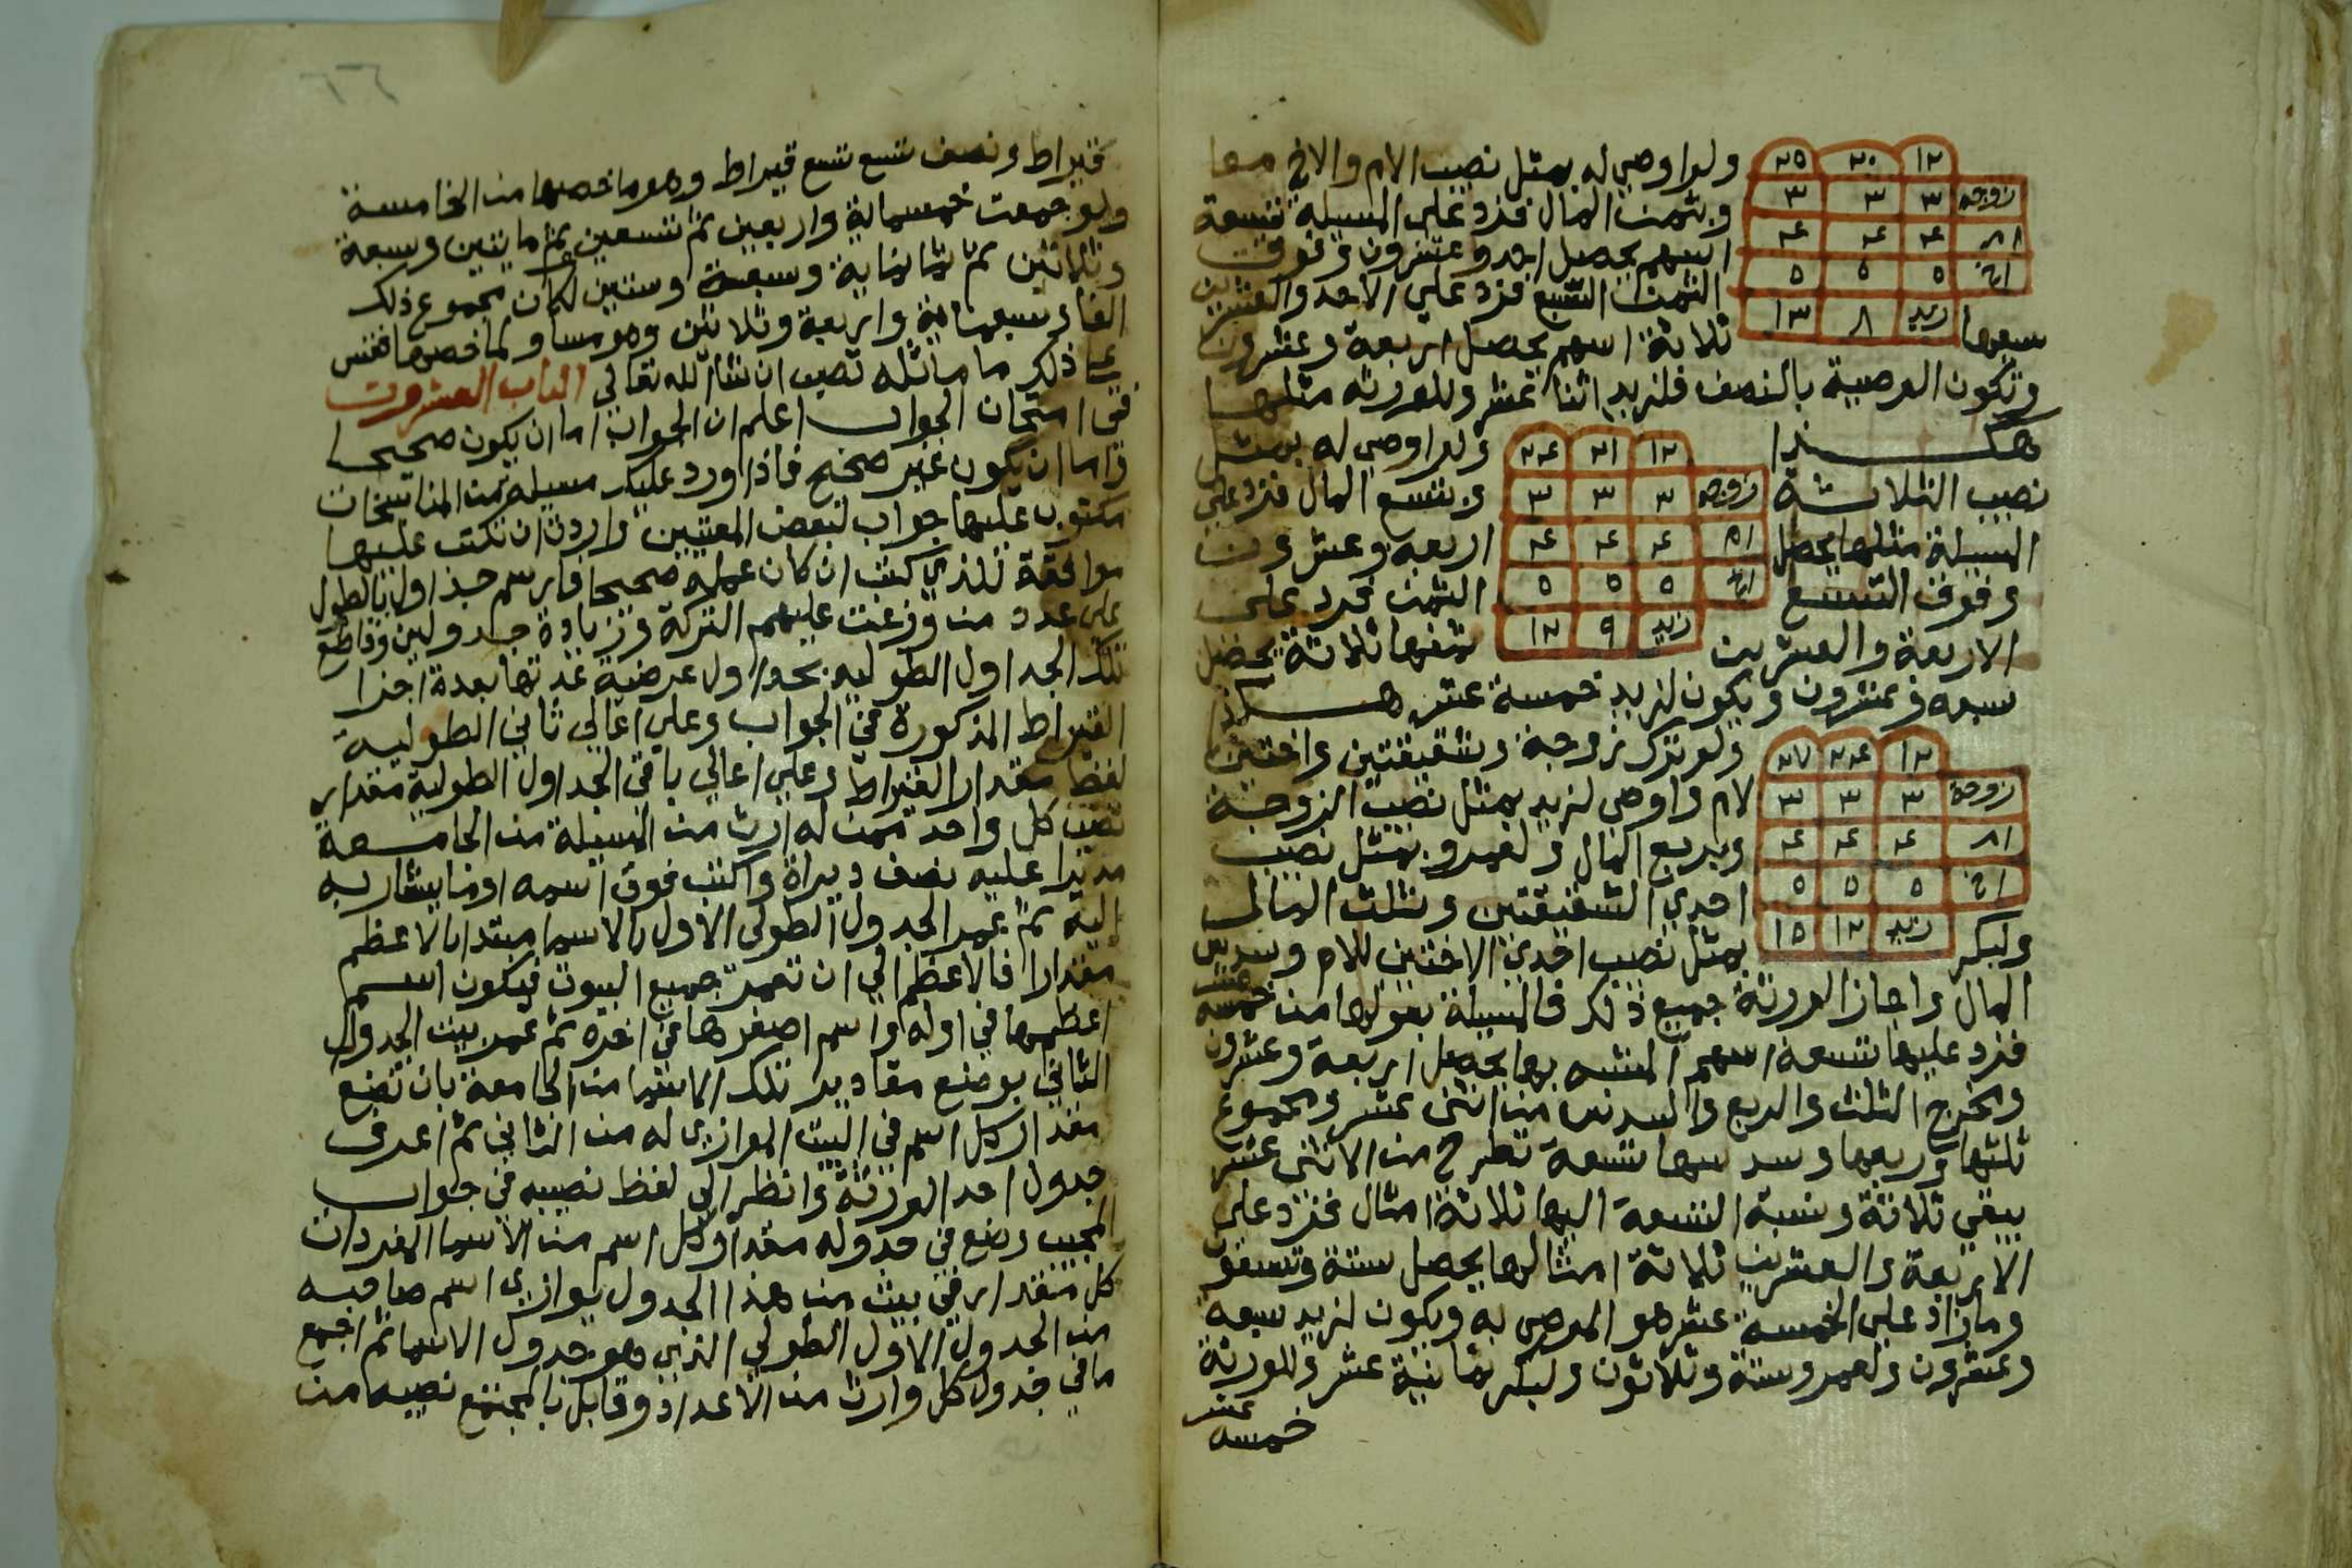 ١٢ ٢٠ ٢٥
زوجه ٣ ٣ ٣
ام ٤ ٤ ٤
اخ ٥ ٥ ٥
زيد ٨ ١٣
ولو اوصي له بمثل نصيب الام والاخ معا
وبثمن المال فزد علي المسيلة تسعة
اسهم يحصل احد وعشرون وفوق
الثمن السبع فزد علي الاحد والعشرين
سبعها ثلاثة اسهم يحصل اربعة وعشرون
وتكون الوصية بالنصف فلزيد اثنا عشر وللورثة مثلها
هكذا
١٢ ٢١ ٢٤
زوجه ٣ ٣ ٣
ام ٤ ٤ ٤
اخ ٥ ٥ ٥
زيد ٩ ١٢
ولو اوصي له بمثل
نصيب الثلاثة وبتسع المال فزد علي
المسيلة مثلها يحصل اربعه وعشرون
وفوق التسع الثمن فزد علي
الاربعة والعشرين ثمنها ثلاثة يحصل
سبعه وعشرون ويكون لزيد خمسة عشر هكذا
١٢ ٢٤ ٢٧
زوجه ٣ ٣ ٣
ام ٤ ٤ ٤
اخ ٥ ٥ ٥
زيد ١٢ ١٥
ولو ترك زوجة وشقيقتين واختين
لام واوصي لزيد بمثل نصيب الزوجة
وبربع المال ولعمرو بمثل نصيب
احدي الشقيقتين وبثلث المال
ولبكر بمثل نصيب احدي الاختين للام وسدس
المال واجاز الورثة جميع ذلك فالمسيلة بعولها من خمسه عشر
فزد عليها تسعة اسهم المشبه بها يحصل اربعة وعشرون
ومخرج الثلث والربع والسدس من اثني عشر ومجموع
ثلثها وربعها وسدسها تسعة تطرح من الاثني عشر
يبقي ثلاثة ونسبة التسعة اليها ثلاثة امثال فزد علي
الاربعة والعشرين ثلاثة امثالها يحصل ستة وتسعون
وما زاد علي الخمسه عشر هو الموصي به ويكون لزيد سبعه
وعشرون ولعمرو ستة وثلاثون ولبكر ثمانية عشر وللورثة
خمسه عشر
قيراط ونصف تسع تسع قيراط وهو ما خصها من الخامسة
ولو جمعت خمسماية واربعين ثم تسعين ثم مايتين وسبعة
وثلاثين ثم ثلثماية وسبعة وستين لكان مجموع ذلك
الفا وسبعماية واربعة وثلاثين وهو مساو لما خصها فقس
علي ذلك ما ماثله تصب ان شا الله تعالي الباب العشرون
في امتحان الجواب اعلم ان الجواب اما ان يكون صحيحا
واما ان يكون غير صحيح فاذا ورد عليك مسيلة من المناسخات
مكتوب عليها جواب لبعض المفتيين واردت ان تكتب عليها
موافقة للذي كتب ان كان عمله صحيحا فارسم جداول بالطول
علي عدد من وزعت عليهم التركة وزيادة جدولين وقاطع
تلك الجداول الطوليه بجداول عرضية عدتها بعدة اجزا
القيراط المذكورة في الجواب وعلي اعالي ثاني الطولية
لفظ مقدار القيراط وعلي اعالي باقي الجداول الطولية مقدار
نصيب كل واحد ممن له ارث من المسيلة من الجامعة
مديرا عليه نصف ديراة واكتب فوق اسمه او ما يشار به
اليه ثم عمر الجدول الطولي الاول بالاسما مبتدا بالاعظم
مقدارا فالاعظم الي ان تعمر جميع البيوت فيكون اسم
اعظمها في اوله واسم اصغرها في اخره ثم عمر بيت الجدول
الثاني بوضع مقادير تلك الاسما من الجامعة بان تضع
مقدار كل اسم في البيت الموازي له من الثاني ثم اعرف
جدول احد الورثة وانظر الي لفظ نصيبه في جواب
المجيب وضع في جدوله مقدار كل اسم من الاسما المفردات
كل مقدار في بيت من هذا الجدول يوازي اسم صاحبه
من الجدول الاول الطولي الذي هو جدول الاسما ثم اجمع
ما في جدول كل وارث من الاعداد وقابل بالمجتمع نصيبه من